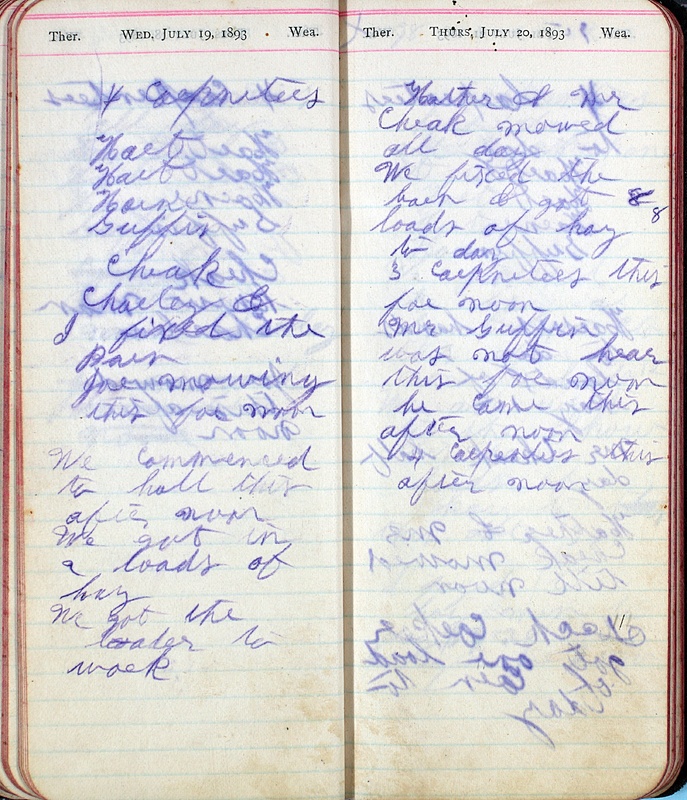 Ther. WED, JULY 19, 1893 Wea.
4 Caepnitees
Haet
Hart
Guffin
Cheak
Charley &
I fixed the
Joe mowing
this foe noon
We commenced
to hall this
after noon
We got in
2 loads of
hay
We got the
loader to
woek
Ther. THURS, JULY 20, 1893 Wea.
Hatter & Mr
Cheak mowed
all day
We fixed the
baen & got 8
loads of hay 8
to day
3 Caepnitees this
foe noon
Mr Guffin
was not hear
this foe noon
he came this
after noon
4 Caepnites this
after noon